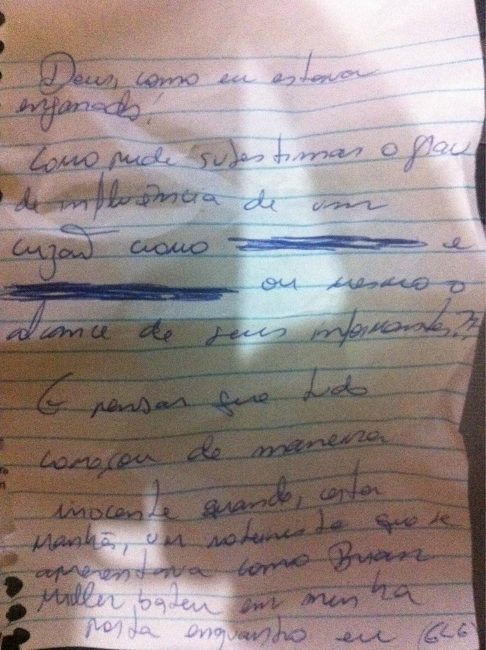 Deus, como eu estava
enganado!
Como pude subestimar o grau
de influência de um
como e
ou mesmo o
alcance de seus informantes??
E pensar que tudo
começou de maneira
inocente quando, certa
manhã, um que se
apresentava como Brian
Miller bateu em minha
porta enquanto eu